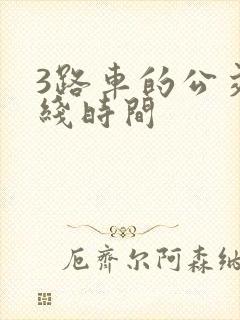 3路車的公交
綫時間
厄齊尔阿森納